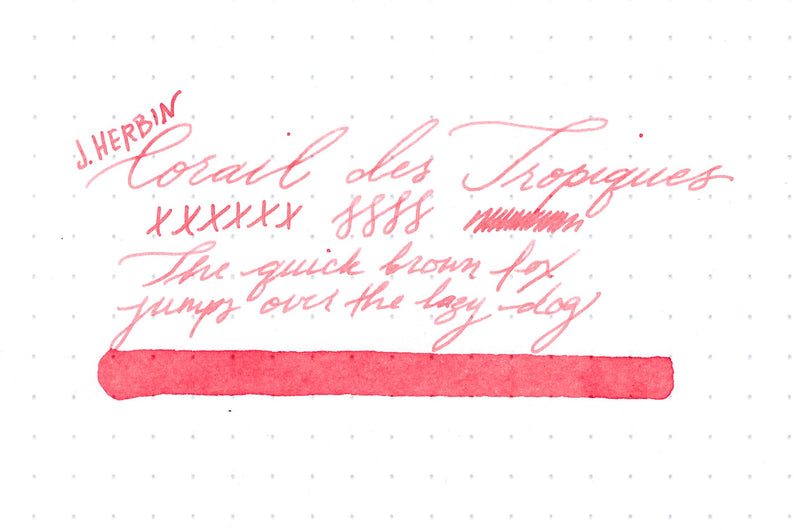 J. HERBIN
Corail des Tropiques
xxxxxx §§§§
The quick brown fox
jumps over the lazy dog